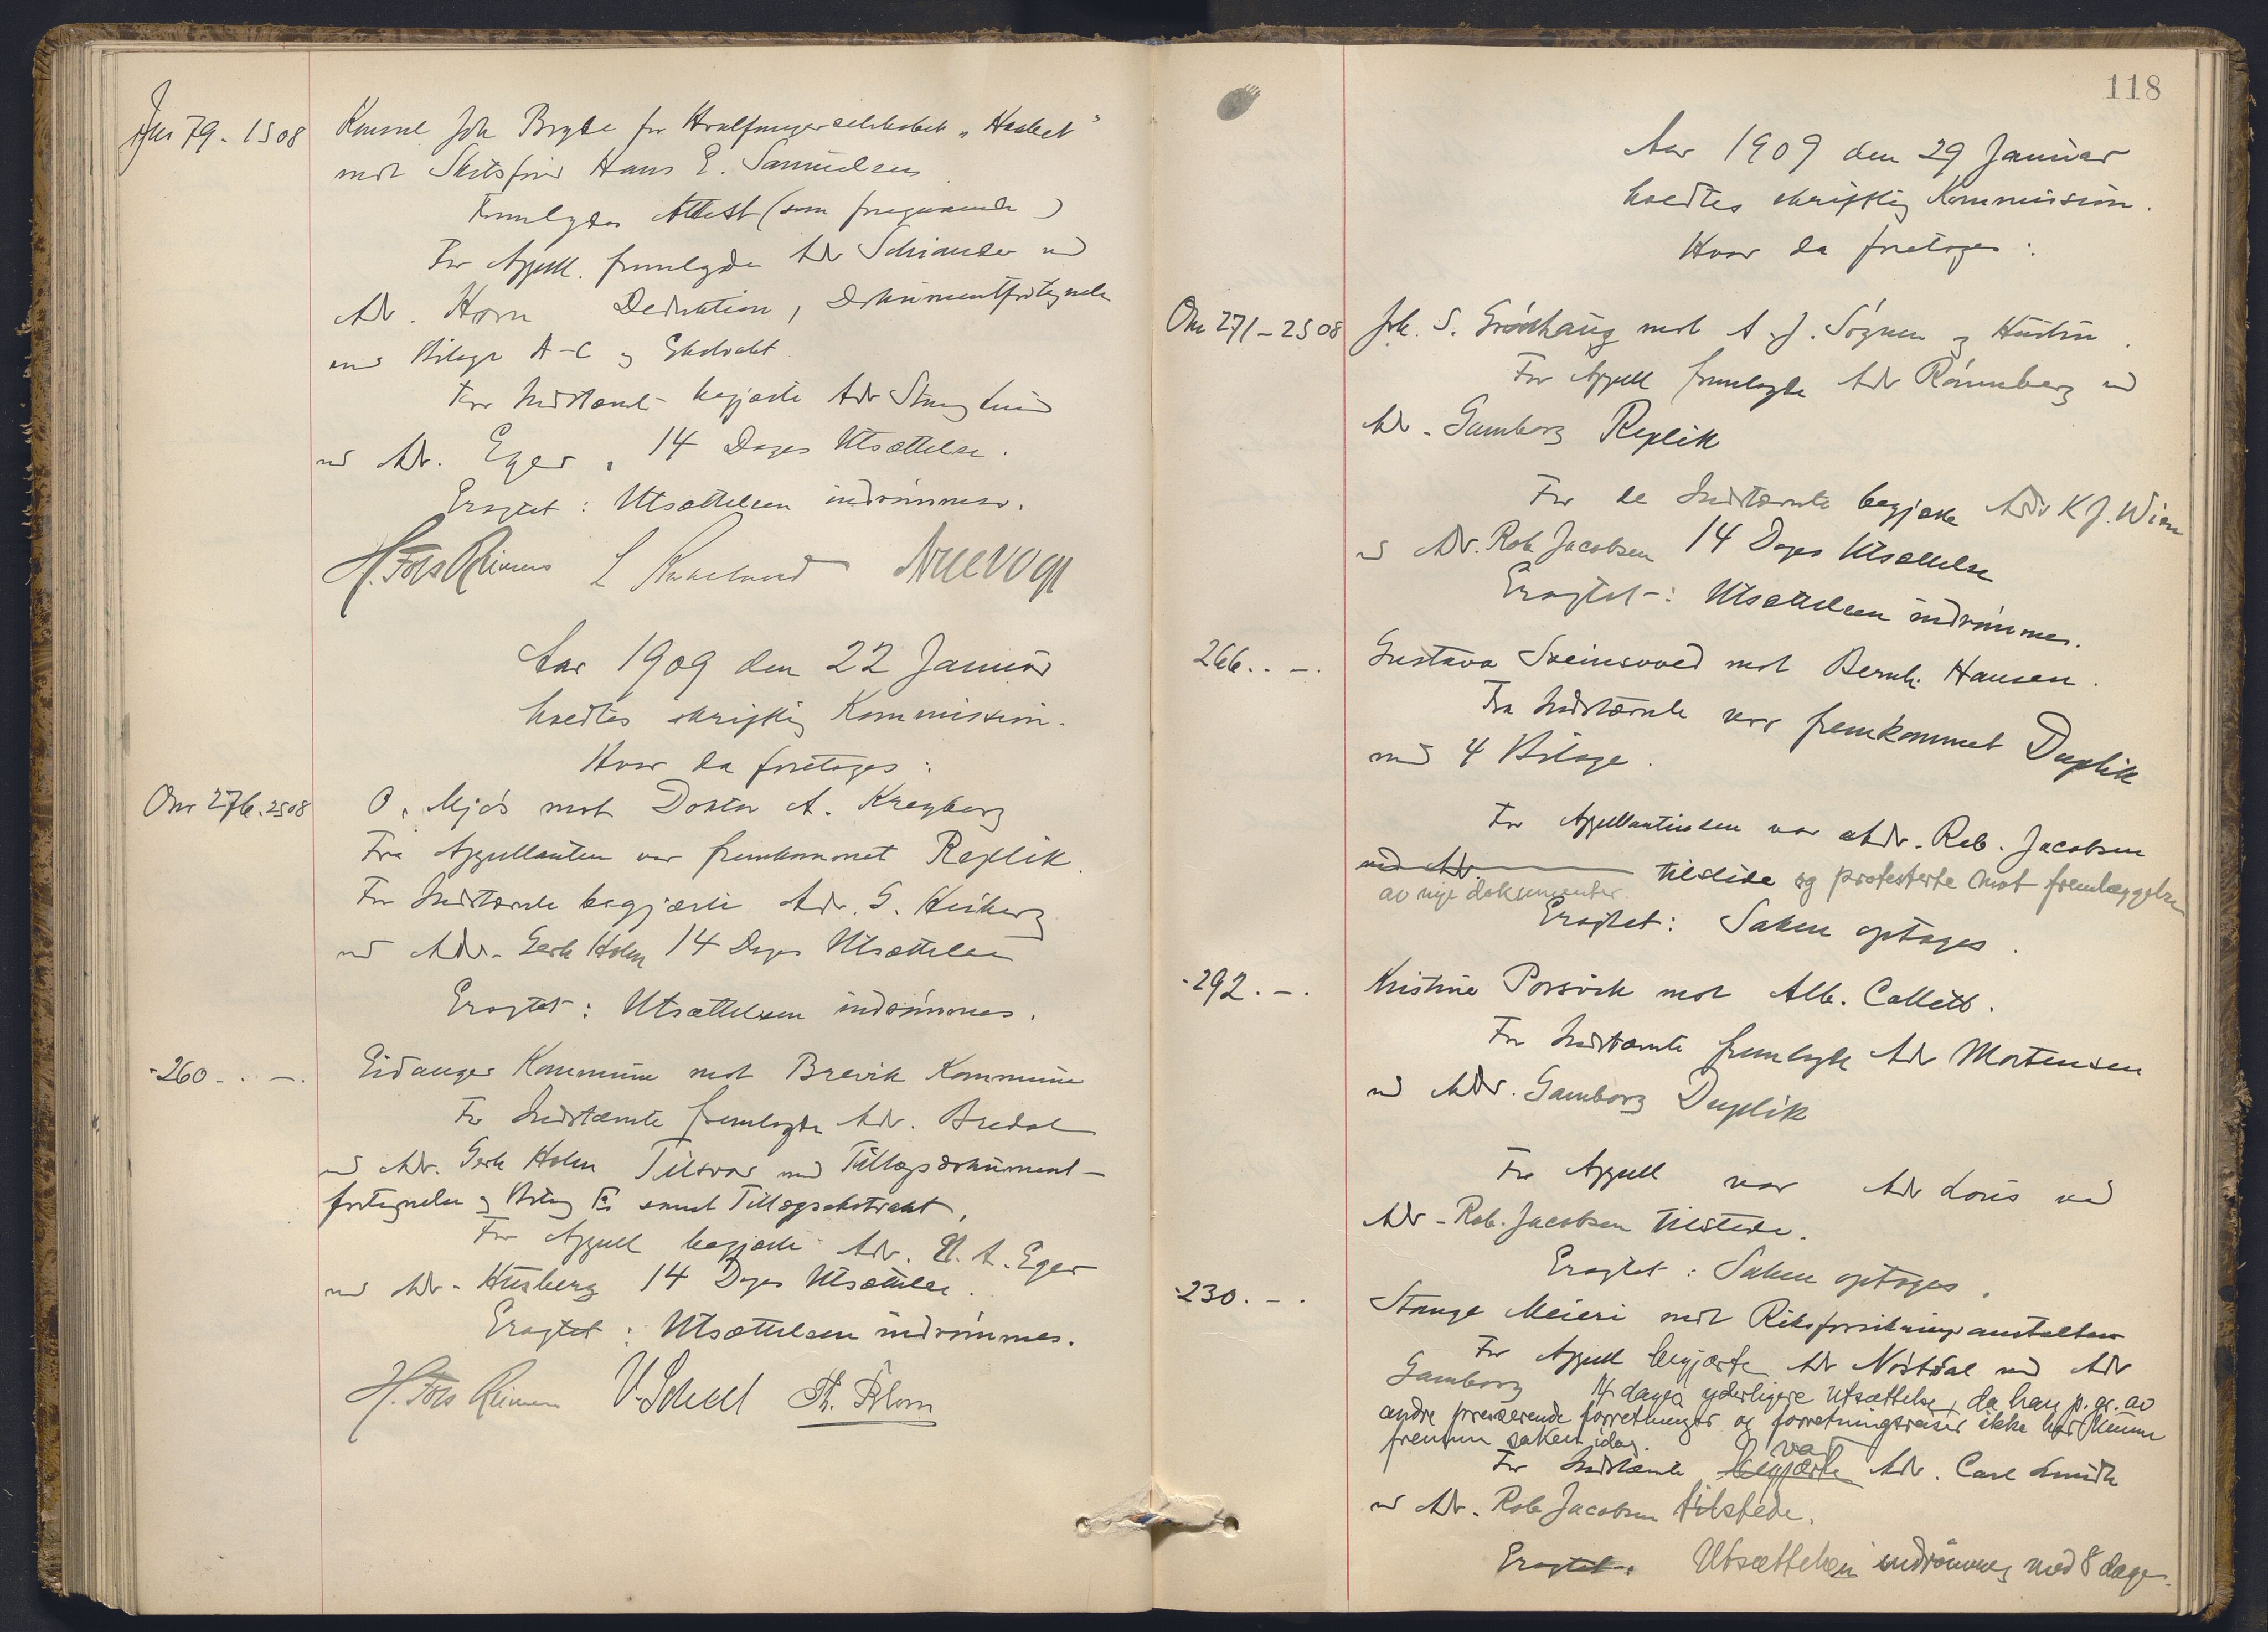 Jnr 79. 1508 Konsul Joh Bryde for Hvalfangerselskabet "Haabet"
mot Skibsfører Hans E. Samuelsen
Fremlagdes Attest (som foregaaende)
For Appell. fremlagde Adv Schiander ved
Adv. Horn Deduktion, Dokumentfortegnelse
med Bilage A-C og Ekstrakt.
For Indstævnte begjærte Adv Stang Lund
ved Adv. Eger, 14 Dages Utsættelse.
Eragtet: Utsættelsen indrømmes.
H. Fors Reimers
Aar 1909 den 22 Januar
holdtes skriftlig Kommission.
Hvor da foretoges:
Onr 276. 2508 O. Mjøs mot Doktor A. Kreyberg
Fra Appellanten var fremkommet Replik.
For Indstævnte begjærte Adv. G. Heiberg
ved Adv. Gerh Holm 14 Dages Utsættelse
Eragtet: Utsættelsen indrømmes.
-260 - . - . Eidanger Kommune mot Brevik Kommune
For Indstævnte fremlagde Adv. Bredal
ved Adv. Gerh Holm Tilsvar med Tillægsdokument-
fortegnelse og Bilag samt Tillægsekstrakt,
For Appell begjærte Adv. A. Eger
ved Adv. Husberg 14 Dages Utsættelse.
Eragtet: Utsættelsen indrømmes.
H. Fors Reimers V. Schell Th. Blom
118
Aar 1909 den 29 Januar
holdtes skriftlig Kommission.
Hvor da foretoges:
Onr 271-2508 Joh. S. Grødhaug mot A. J. Sognen og Hustru.
For Appell fremlagde Adv Rønneberg ved
Adv. Gamborg Replik
For de Indstævnte begjærte Adv K J. Wien
ved Adv. Rob Jacobsen 14 Dages Utsættelse
Eragtet: Utsættelsen indrømmes.
266. . -. Gustava Sveinsvoed mot Bernh. Hansen.
Fra Indstævnte var fremkommet Duplik
med 4 Bilage.
For Appellantinden var Adv. Rob. Jacobsen
ved Adv. tilstede og protesterte mot fremlæggelse
av nye dokumenter.
Eragtet: Saken optages.
-292. -. Kristine Porsvik mot Alb. Collett.
For Indstævnte fremlagde Adv Mortensen
ved Adv. Gamborg Duplik
For Appell var Adv Lous ved
Adv. Rob. Jacobsen tilstede.
Eragtet: Saken optages.
-230. -. Stange Meieri mot Riksforsikringsanstalten
For Appell begjærte Adv Nøstdal ved Adv
Gamborg 14 dages yderligere utsættelse, da han p. gr. av
andre presserende forretninger og forretningsreiser ikke har kunne
fremme saken idag.
var
For Indstævnte begjærte Adv. Carl Lundh
ved Adv. Rob Jacobsen tilstede.
Eragtet: Utsættelsen indrømmes med 8 dage.